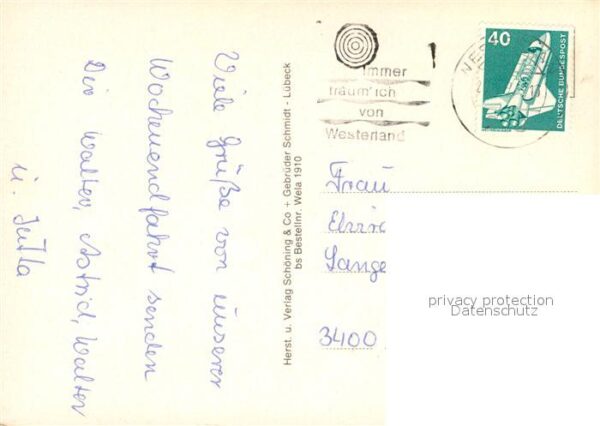 Viele Grüße von unserer
Wochenendfahrt senden
Dir Walter, Astrid, Walter
u. Jutta
Herst. u. Verlag Schöning & Co + Gebrüder Schmidt - Lübeck
bs Bestellnr. Wela 1910
immer
träum' ich
von
Westerland
40
DEUTSCHE BUNDESPOST
Frau
3400
privacy protection
Datenschutz